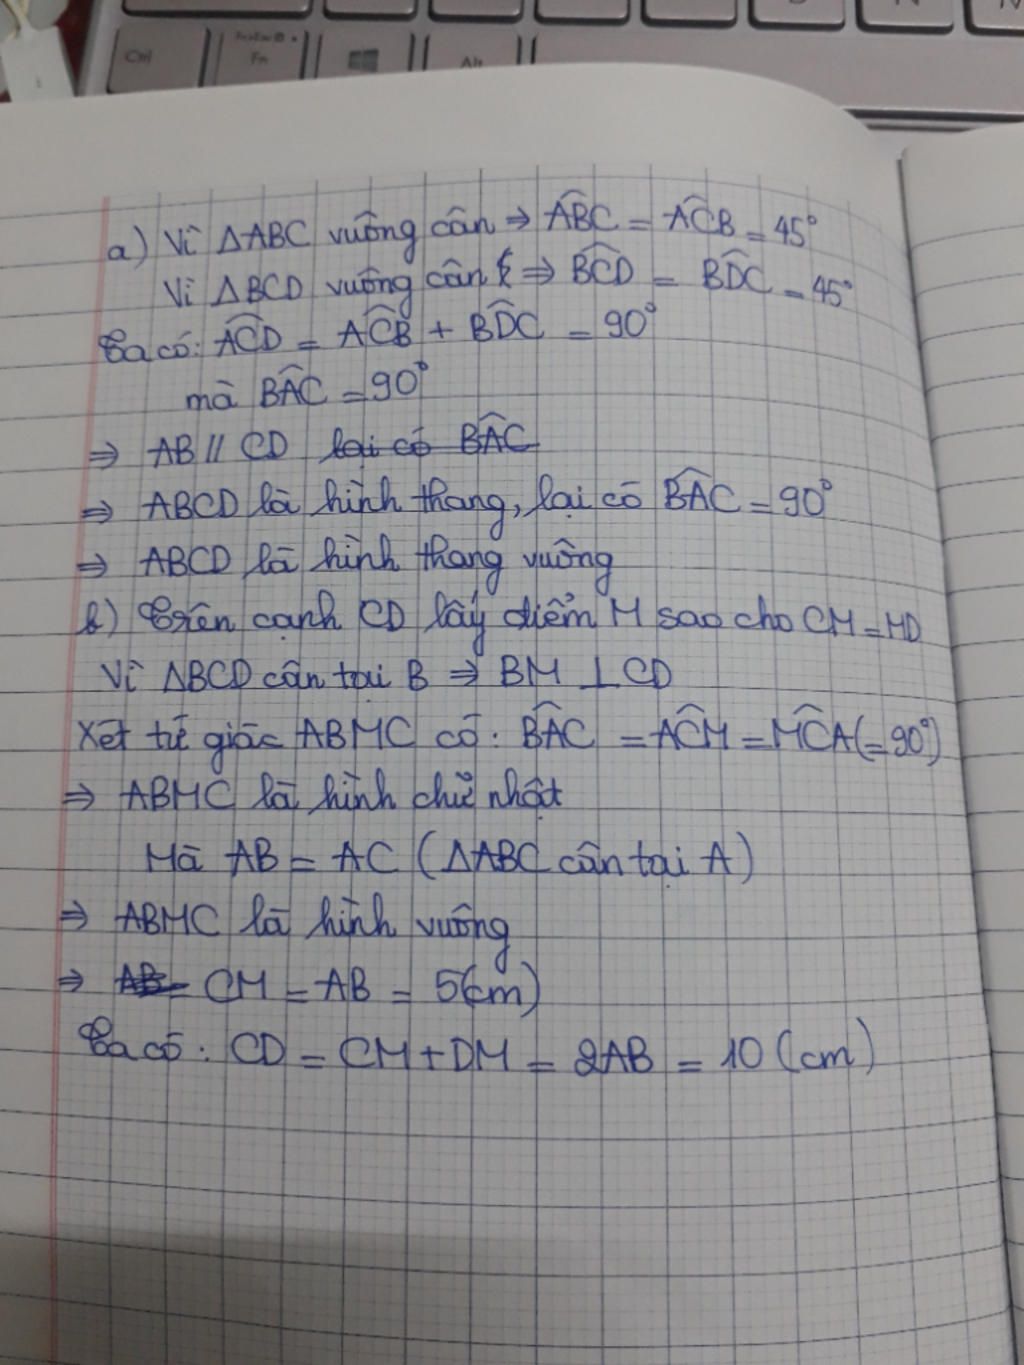 Ctrl
Fn
Alt
a) Vì ΔABC vuông cân ⇒ \widehat{ABC} = \widehat{ACB} = 45°
Vì ΔBCD vuông cân ⇒ \widehat{BCD} = \widehat{BDC} = 45°
Ta có: \widehat{ACD} = \widehat{ACB} + \widehat{BDC} = 90°
mà \widehat{BAC} = 90°
⇒ AB // CD lại có \widehat{BAC}
⇒ ABCD là hình thang, lại có \widehat{BAC} = 90°
⇒ ABCD là hình thang vuông
b) Trên cạnh CD lấy điểm M sao cho CM = MD
Vì ΔBCD cân tại B ⇒ BM ⊥ CD
Xét tứ giác ABMC có: \widehat{BAC} = \widehat{ACM} = \widehat{MCA} (= 90°)
⇒ ABMC là hình chữ nhật
Mà AB = AC (ΔABC cân tại A)
⇒ ABMC là hình vuông
⇒ AB = CM = AB = 5(cm)
Ta có: CD = CM + DM = 2AB = 10 (cm)